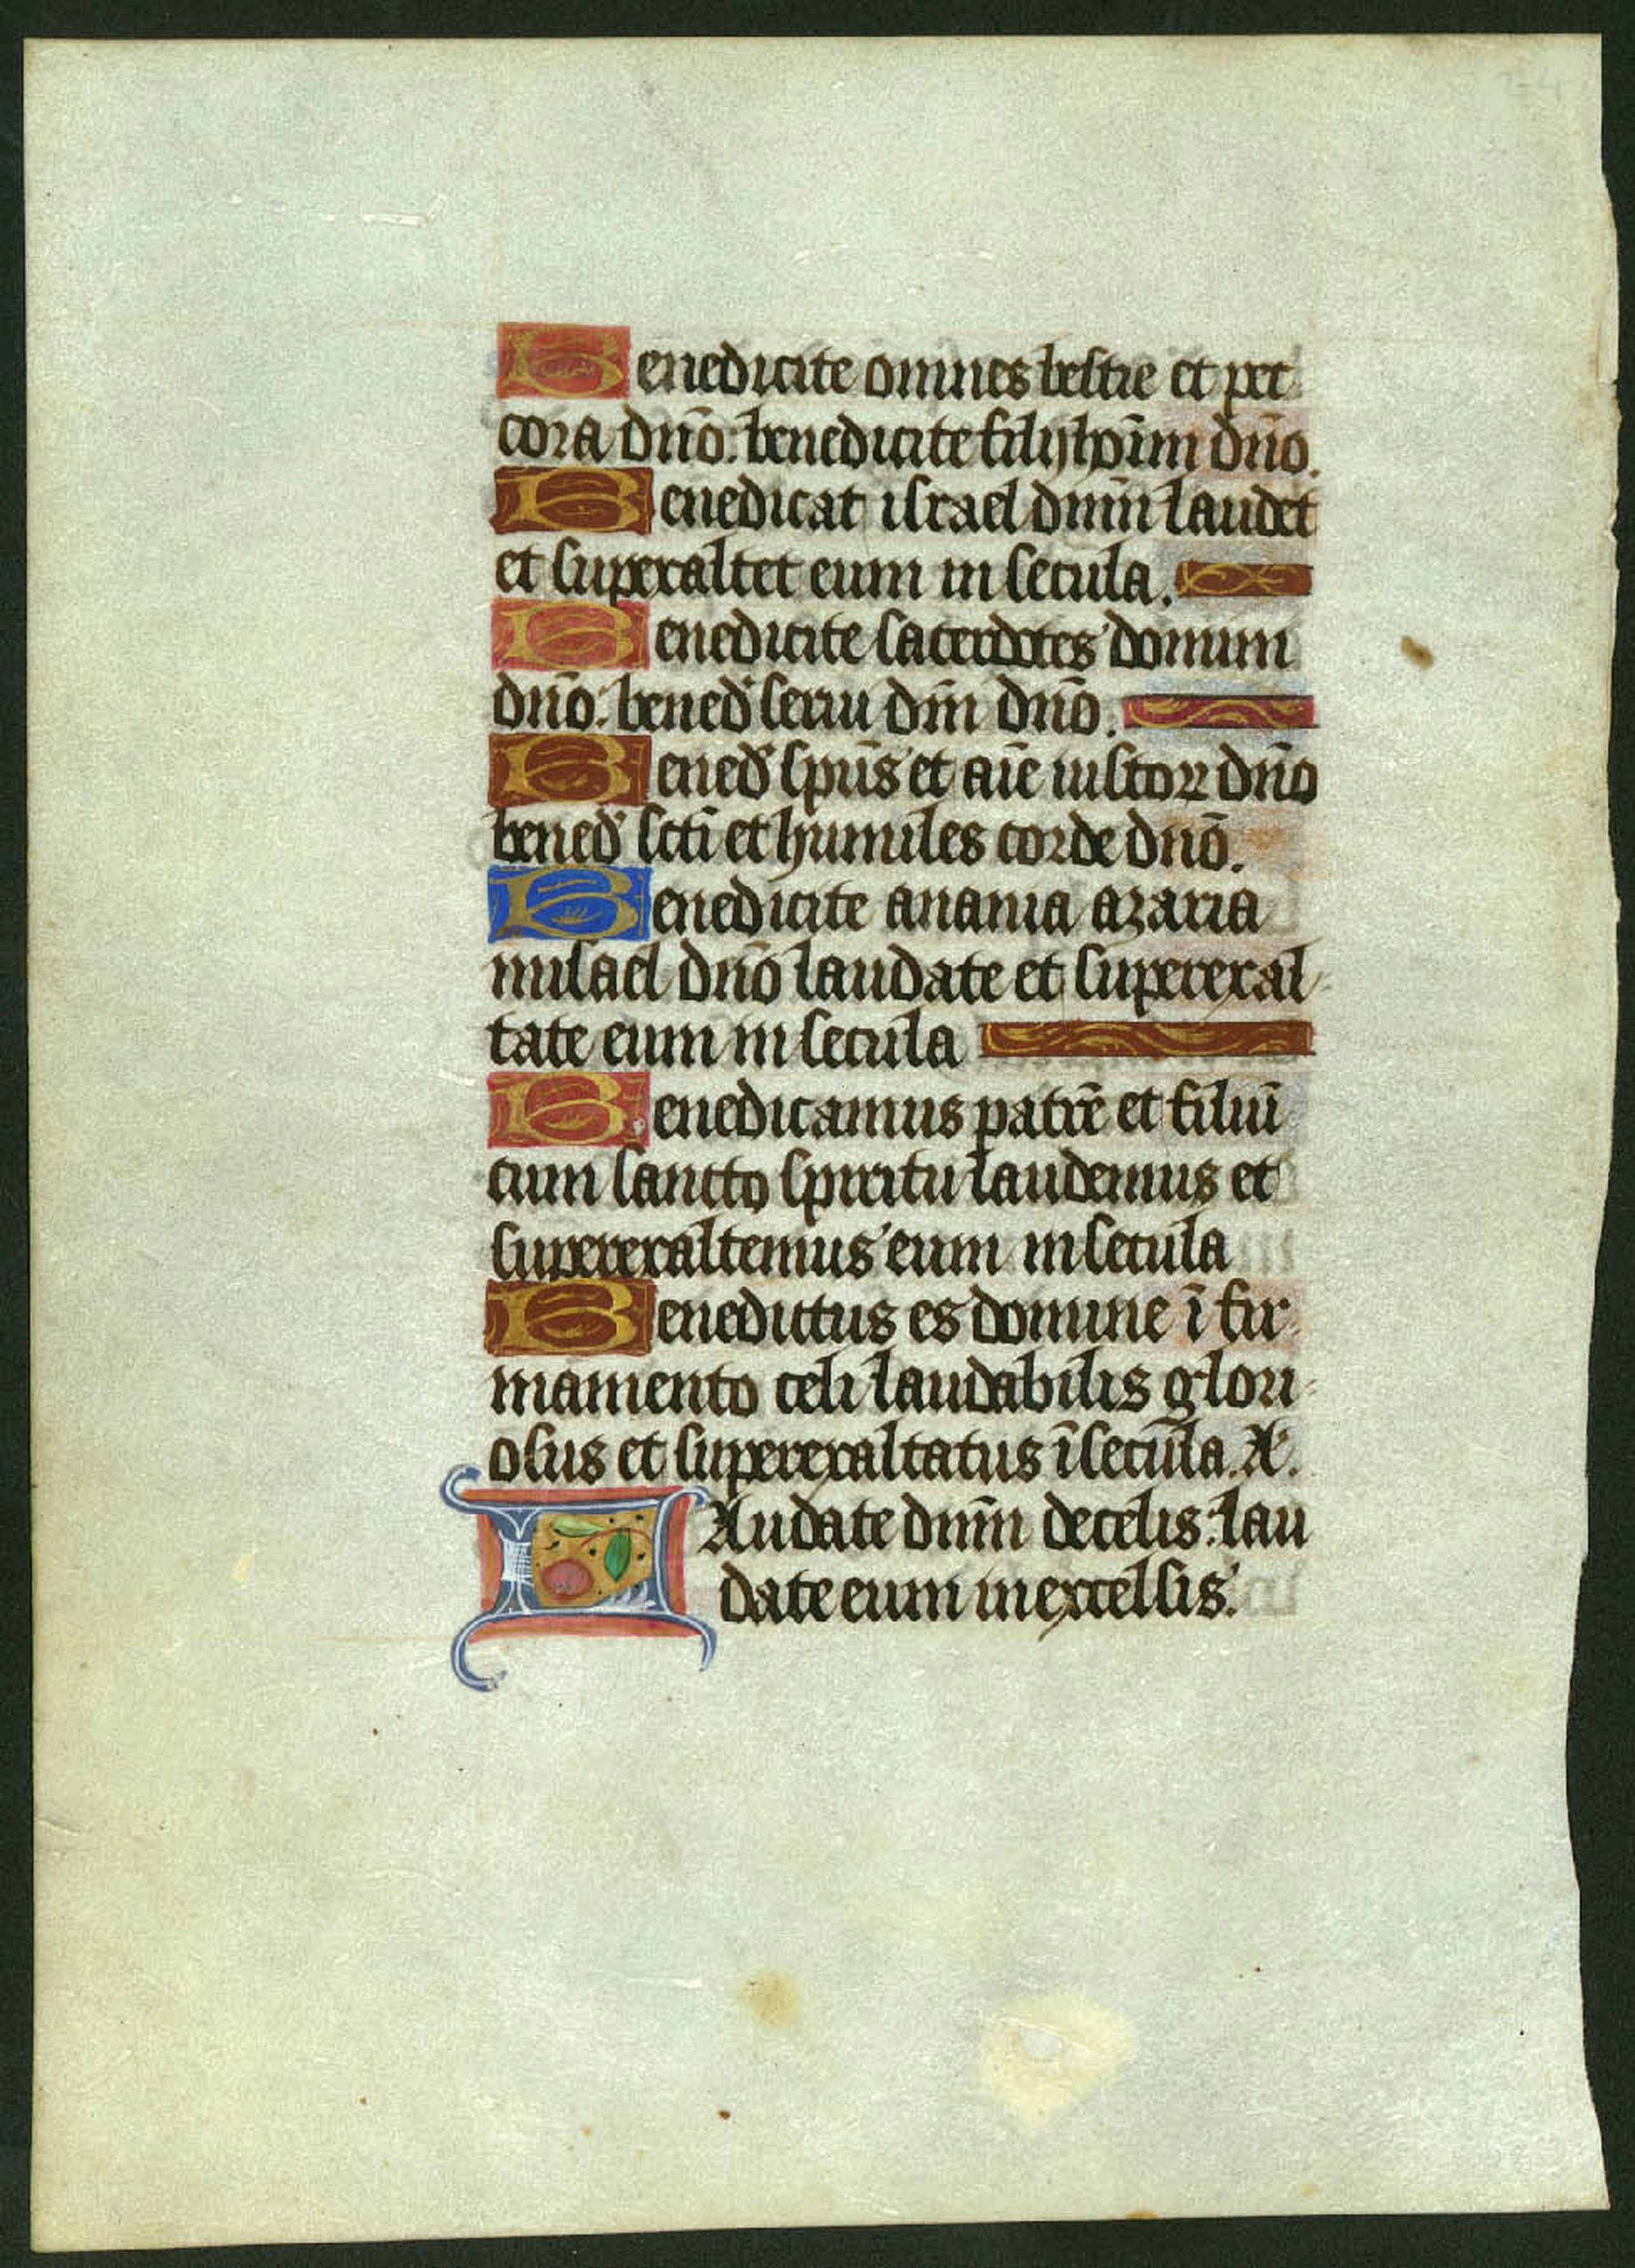 Benedicite omnes bestie et pec
cora dño: benedicite filij hoim̄ dño.
Benedicat israel dnm̄ laudet
et superaltet eum in secula.
Benedicite sacerdotes domini
dño: bened' serui dm̄ dño.
Bened' spūs et aīe iustoꝝ dño
bened' scti et humiles corde dño.
Benedicite anania azaria
misael dño laudate et superexal
tate eum in secula
Benedicamus patrē et filiū
cum sancto spiritu laudemus et
superexaltemus eum in secula
Benedictus es domine ī fir
mamento celi laudabilis glori
osus et superexaltatus ī secula. A.
Laudate dnm̄ de celis: lau
date eum in excelsis.